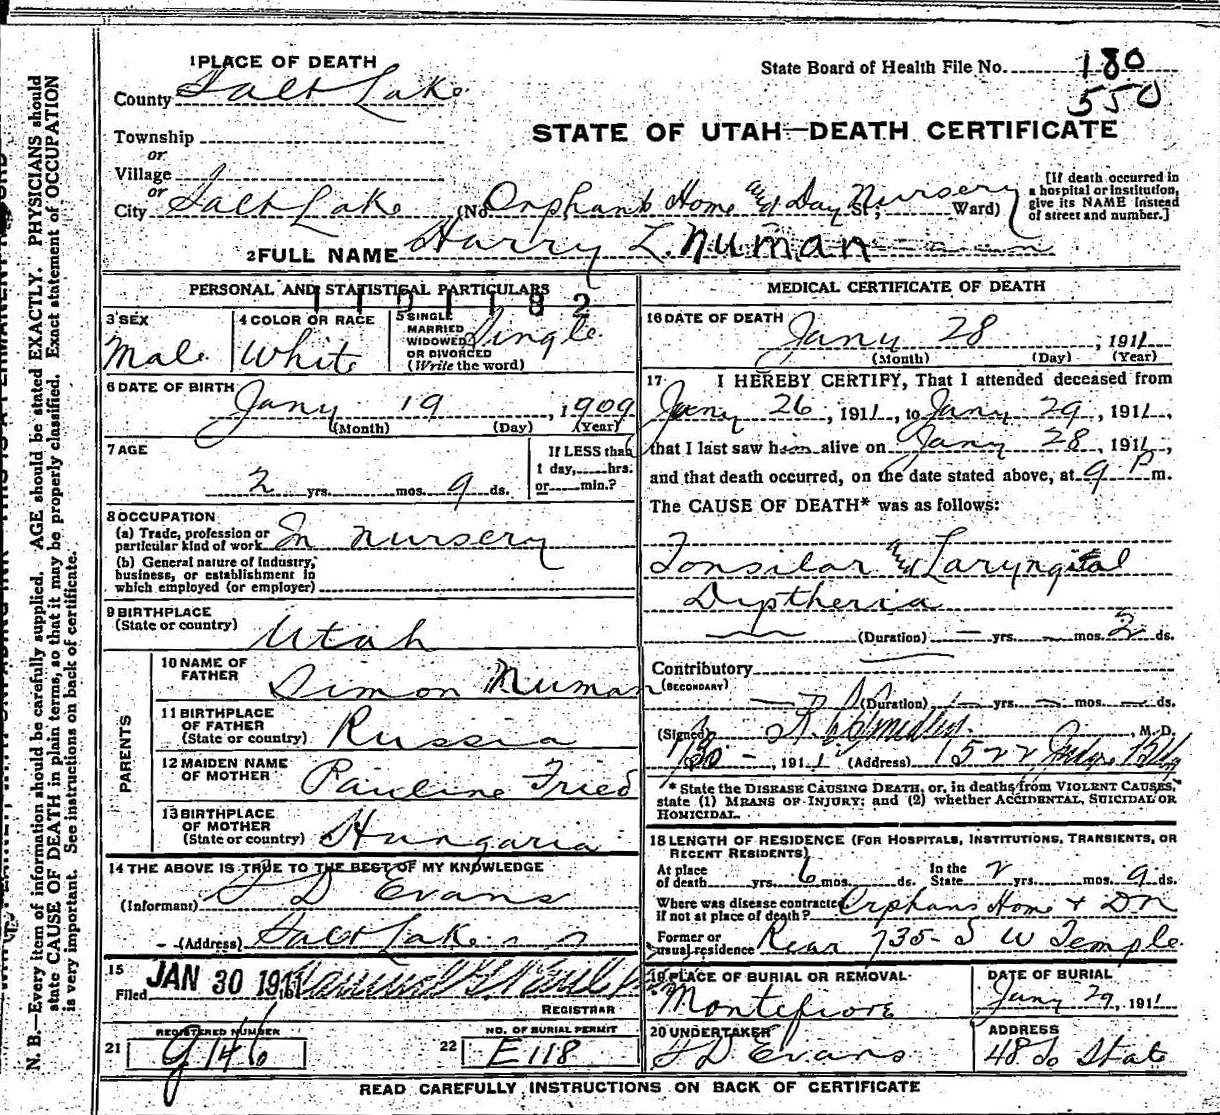 1 PLACE OF DEATH
State Board of Health File No. 180
550
County Salt Lake
STATE OF UTAH—DEATH CERTIFICATE
Township
or
Village
or
City Salt Lake (No. Orphans Home and Day Nursery St; Ward)
[If death occurred in
a hospital or institution,
give its NAME instead
of street and number.]
2 FULL NAME Harry L. Numan
PERSONAL AND STATISTICAL PARTICULARS
3 SEX
Male
4 COLOR OR RACE
White
5 SINGLE
MARRIED
WIDOWED
OR DIVORCED
(Write the word)
Single
6 DATE OF BIRTH
Jany 19, 1909
(Month) (Day) (Year)
7 AGE
2 yrs. mos. 9 ds.
If LESS than
1 day, hrs.
or min.?
8 OCCUPATION
(a) Trade, profession or
particular kind of work In nursery
(b) General nature of Industry,
business, or establishment in
which employed (or employer)
9 BIRTHPLACE
(State or country)
Utah
PARENTS
10 NAME OF
FATHER
Simon Numan
11 BIRTHPLACE
OF FATHER
(State or country)
Russia
12 MAIDEN NAME
OF MOTHER
Pauline Fried
13 BIRTHPLACE
OF MOTHER
(State or country)
Hungaria
14 THE ABOVE IS TRUE TO THE BEST OF MY KNOWLEDGE
(Informant) S D Evans
(Address) Salt Lake
15
Filed JAN 30 1911
REGISTRAR
REGISTERED NUMBER
21 G146
NO. OF BURIAL PERMIT
22 E118
MEDICAL CERTIFICATE OF DEATH
16 DATE OF DEATH
Jany 28, 1911
(Month) (Day) (Year)
17 I HEREBY CERTIFY, That I attended deceased from
Jany 26, 1911, to Jany 29, 1911,
that I last saw him alive on Jany 28, 1911,
and that death occurred, on the date stated above, at 9 P m.
The CAUSE OF DEATH* was as follows:
Tonsilar and Laryngital
Diptheria
(Duration) — yrs. — mos. 3 ds.
Contributory
(SECONDARY)
(Duration) — yrs. — mos. — ds.
(Signed) Smedley, M.D.
1/30 -, 1911 (Address) 1522 Judge Bldg
* State the DISEASE CAUSING DEATH, or, in deaths from VIOLENT CAUSES,
state (1) MEANS OF INJURY; and (2) whether ACCIDENTAL, SUICIDAL OR
HOMICIDAL.
18 LENGTH OF RESIDENCE (FOR HOSPITALS, INSTITUTIONS, TRANSIENTS, OR
RECENT RESIDENTS)
At place
of death yrs. 6 mos. ds.
In the
State 2 yrs. mos. 9 ds.
Where was disease contracted
If not at place of death? Orphans Home & DN
Former or
usual residence Rear 735- S W Temple
19 PLACE OF BURIAL OR REMOVAL
Montefiore
DATE OF BURIAL
Jany 29, 1911
20 UNDERTAKER
S D Evans
ADDRESS
48 So State
READ CAREFULLY INSTRUCTIONS ON BACK OF CERTIFICATE
N. B.—Every item of information should be carefully supplied. AGE should be stated EXACTLY. PHYSICIANS should
state CAUSE OF DEATH in plain terms, so that it may be properly classified. Exact statement of OCCUPATION
is very important. See instructions on back of certificate.